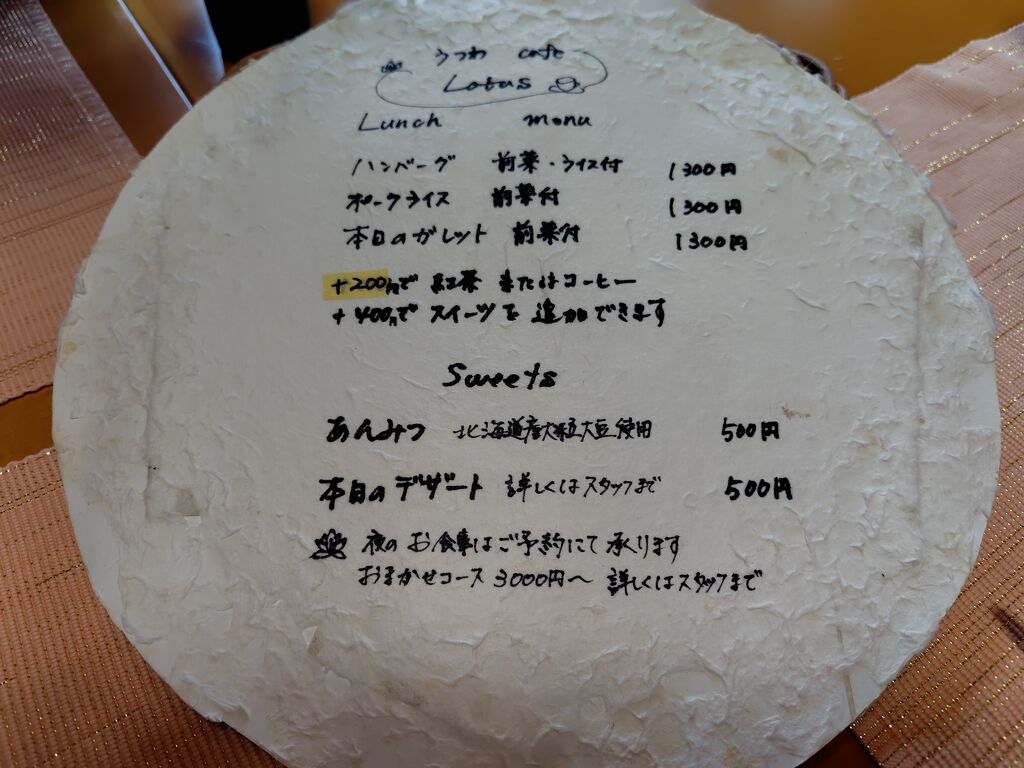 うつわ cafe
Lotus
Lunch menu
ハンバーグ 前菜・ライス付 1300円
ポークライス 前菜付 1300円
本日のガレット 前菜付 1300円
+200円で 紅茶 またはコーヒー
+400円で スイーツを 追加できます
Sweets
あんみつ 北海道産大粒大豆使用 500円
本日のデザート 詳しくはスタッフまで 500円
夜の お食事はご予約にて承ります
おまかせコース 3000円〜 詳しくはスタッフまで